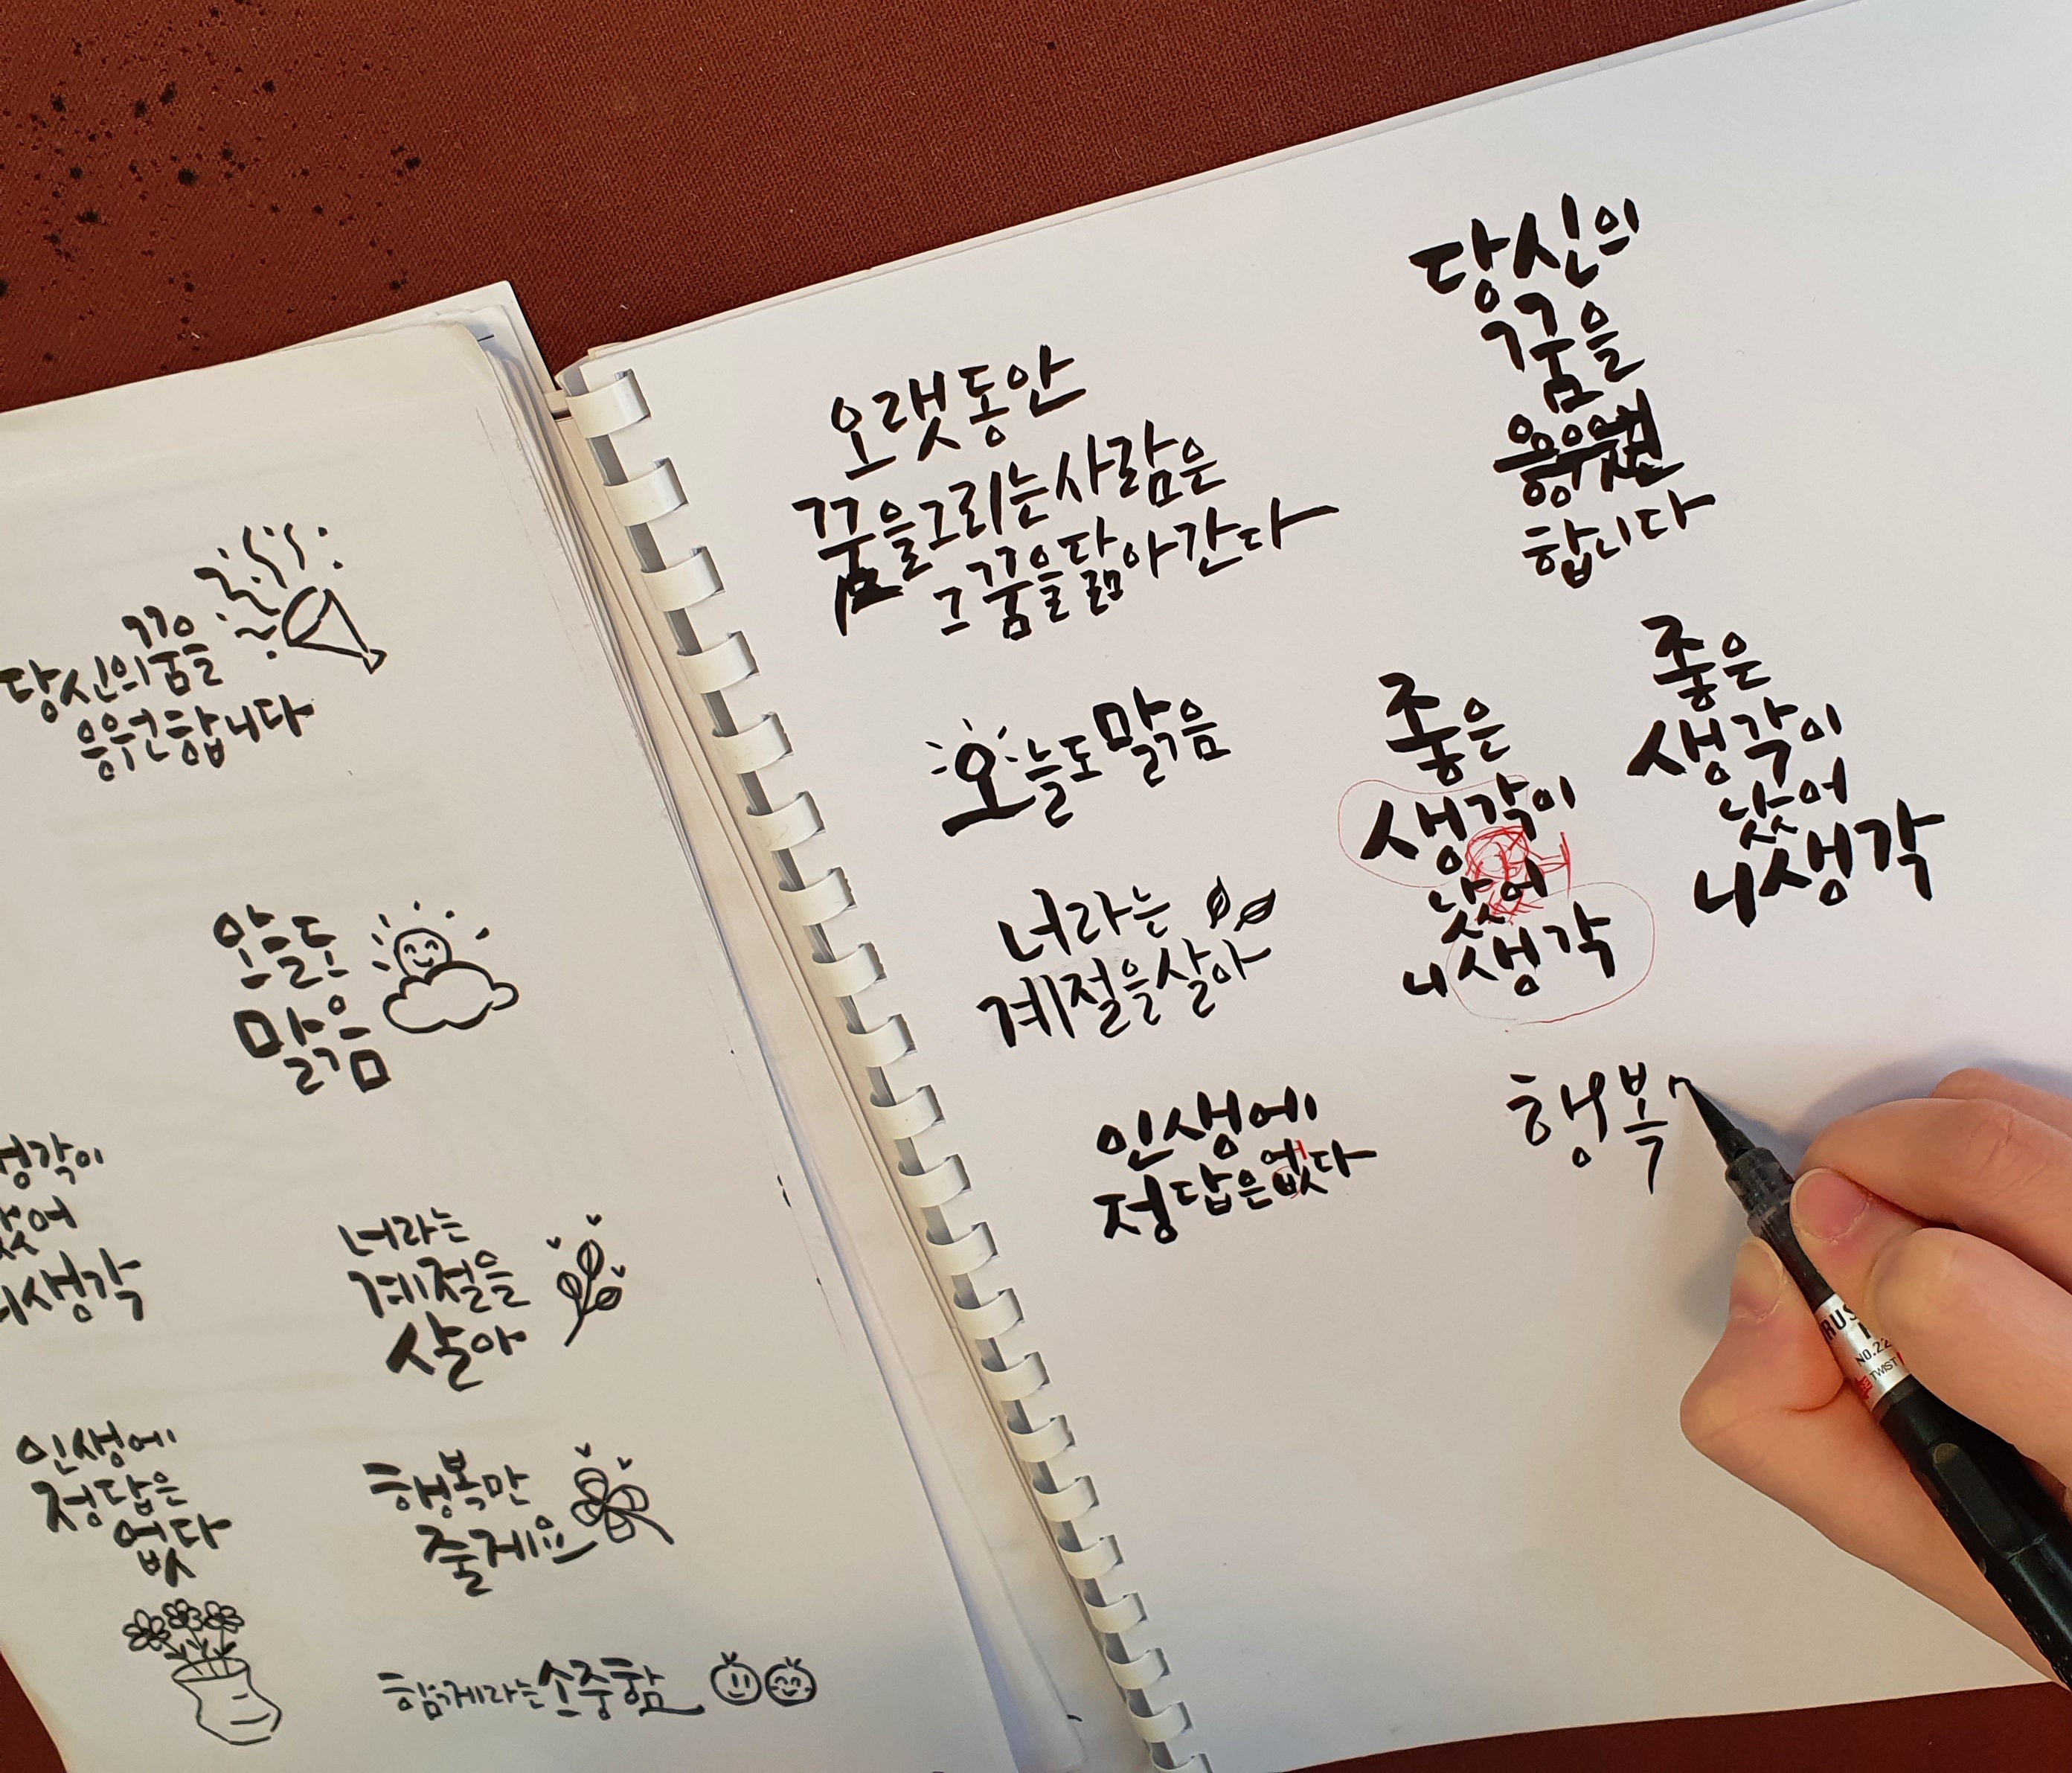 당신의꿈을
응원합니다
오늘도
맑음
생각이
났어
니생각
너라는
계절을
살아
인생에
정답은
없다
행복만
줄게요
함께라는소중함
오랫동안
꿈을그리는사람은
그꿈을닮아간다
오늘도맑음
너라는
계절을살아
인생에
정답은없다
당신의
꿈을
응원
합니다
좋은
생각이
났어
니생각
좋은
생각이
났어
니생각
행복
NO.22
TWIST